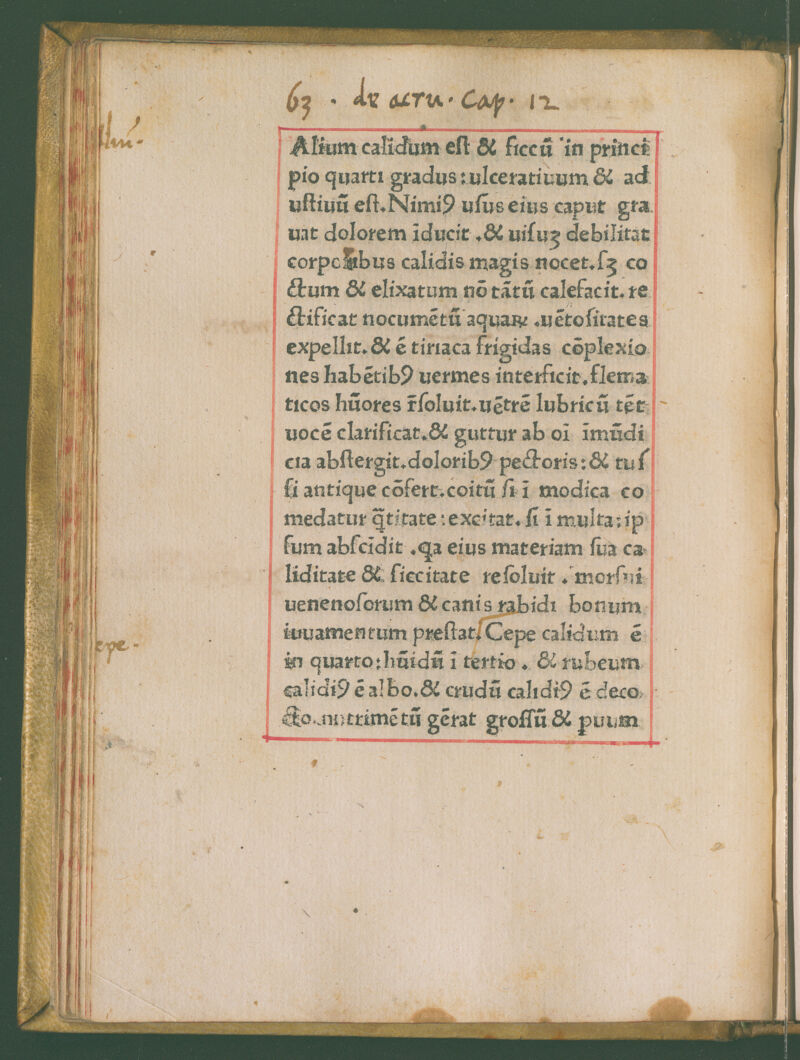 63 · de acru · Cap · 12
Aliū ·
Alium calidum eſt & ſiccū in princi
pio quarti gradus : ulceratiuum & ad
uſtiuū eſt. Nimiꝯ uſus eius caput gra
uat dolorem īducit . & uiſuꝫ debilitat
corporibus calidis magis nocet. ſꝫ co
ctum & elixatum nō tātū calefacit. re
ctificat nocumētū aquaꝝ . uētoſitates
expellit. & ē tiriaca frigidas cōplexio
nes habētibꝯ uermes interficit. flema
ticos hūores r̄ſoluit. uētrē lubricū tēt
uocē clarificat. & guttur ab oī īmūdi
cia abſtergit. doloribꝯ pectoris : & tuſ
ſi antique cōfert. coitū ſi ī modica co
medatur q̄titate : excitat. ſi ī multa : ip
ſum abſcidit . qa eius materiam ſua ca
liditate & ſiccitate reſoluit . morſui
uenenoſorum & canis rabidi bonum
iuuamentum preſtat. Cepe calidum ē
cepe ·
in quarto : hūidū ī tertio . & rubeum
calidiꝯ ē albo. & crudū calidiꝯ ē deco
cto. nutrimētū gērat groſſū & puum